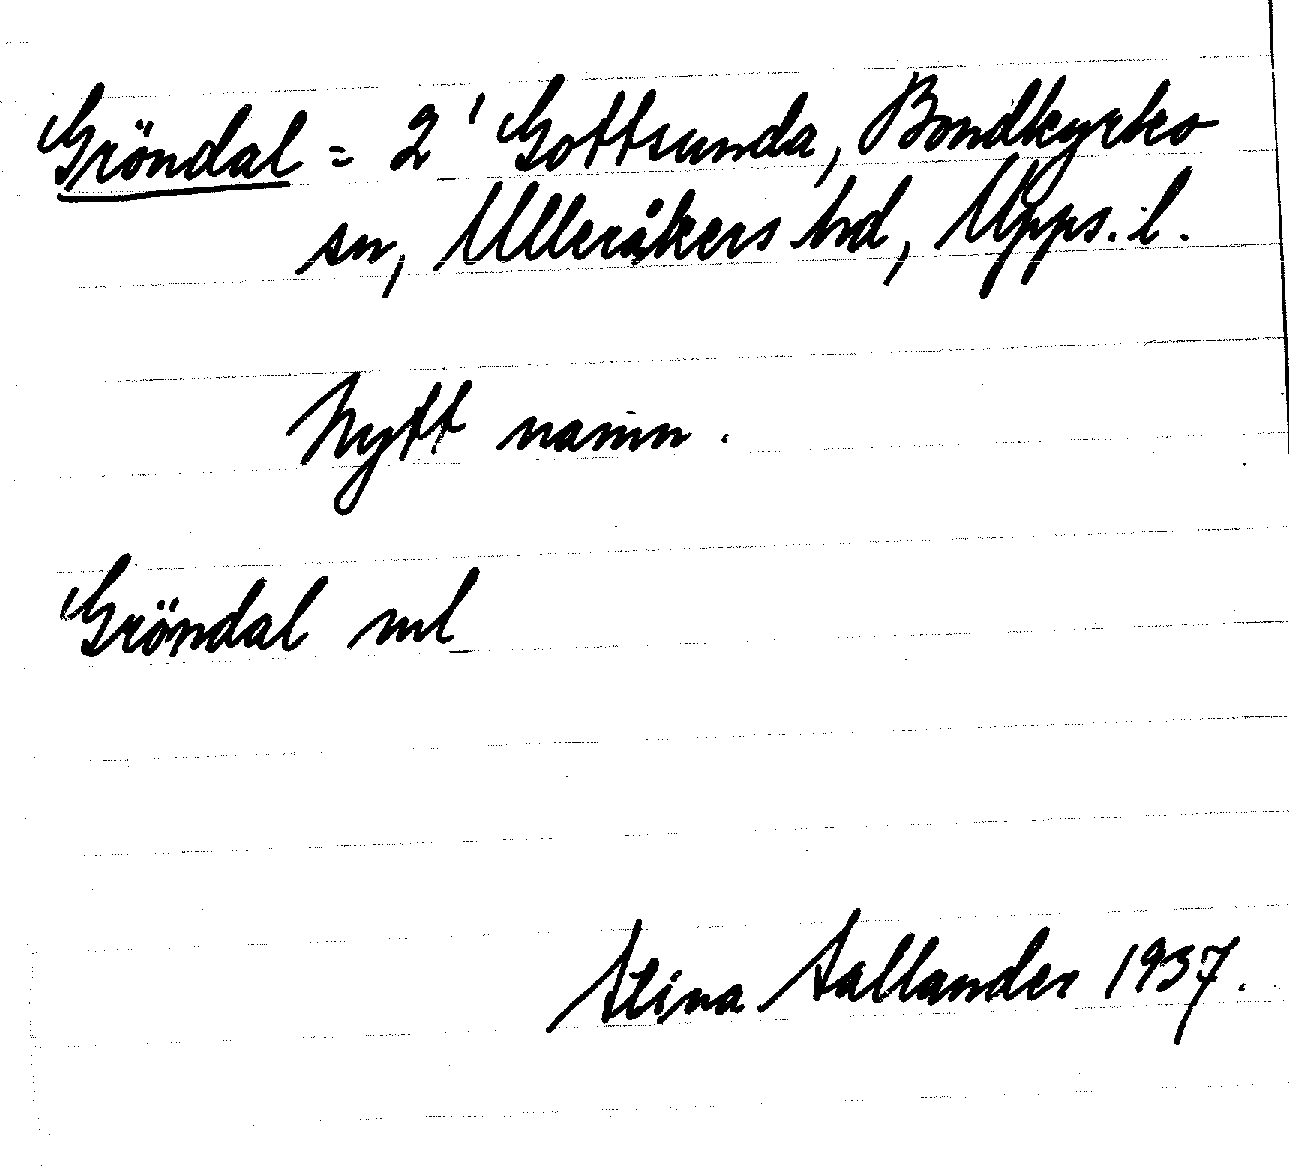 Gröndal = 2¹ Gottsunda, Bondkyrko
sn, Ulleråkers hd, Upps. l.
Nytt namn.
Gröndal ml
Stina Sallander 1937.